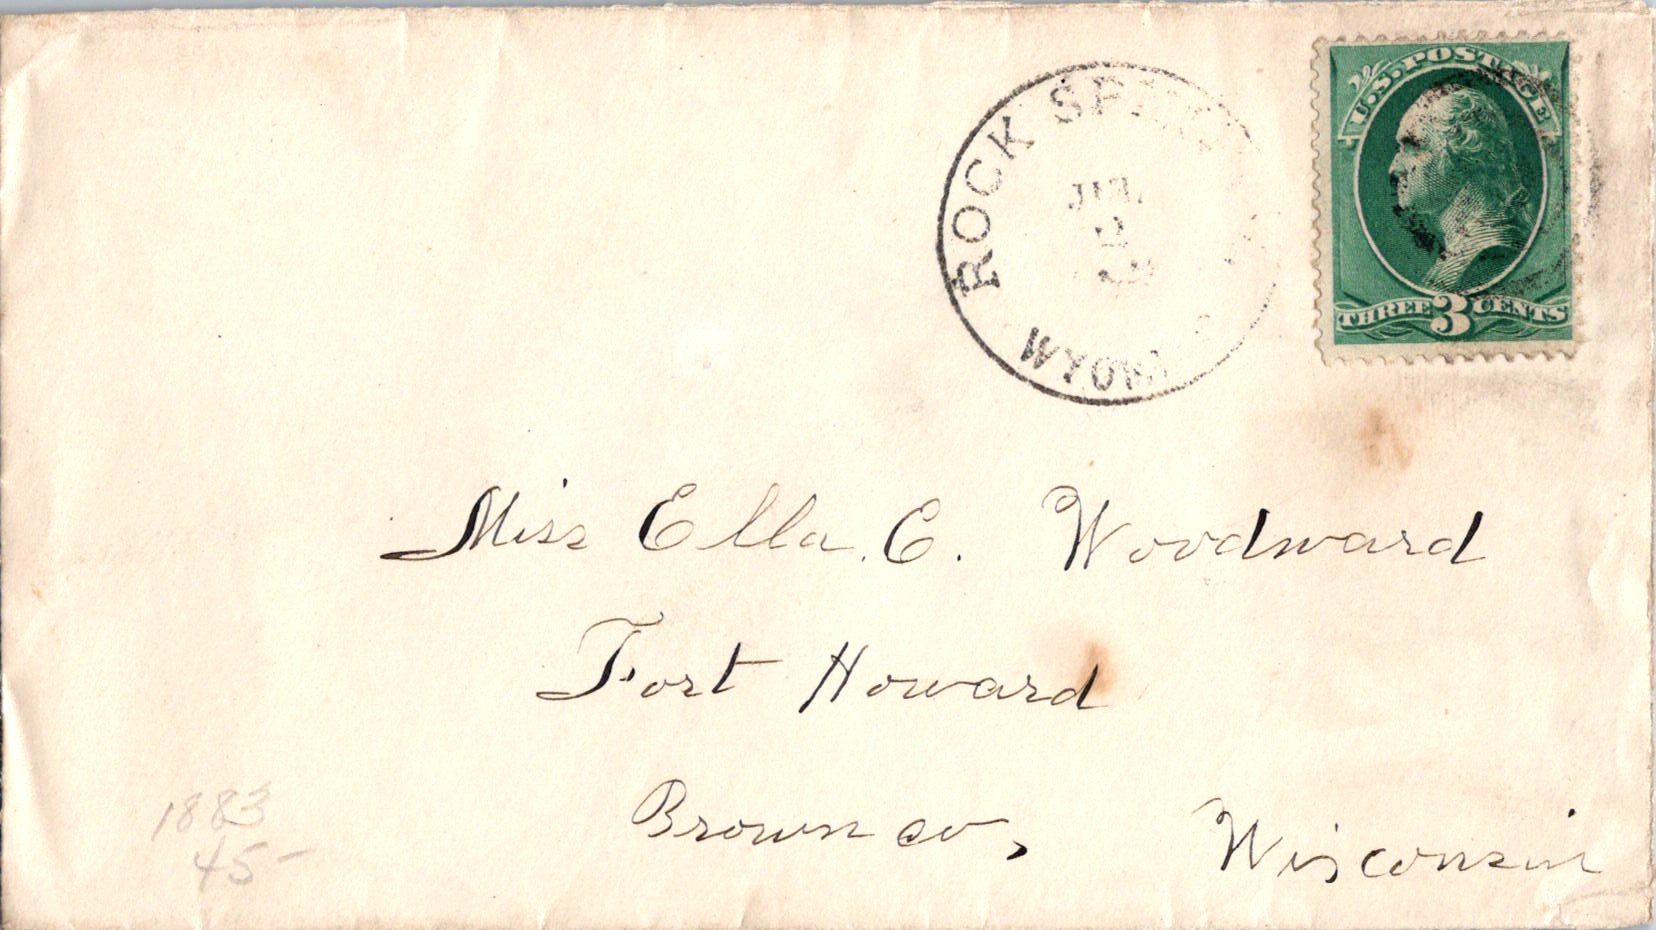 U.S. POSTAGE
ROCK SPRI
JUL
2
WYOM
THREE 3 CENTS
Miss Ella. C. Woodward
Fort Howard
Brown co, Wisconsin
1883
45-